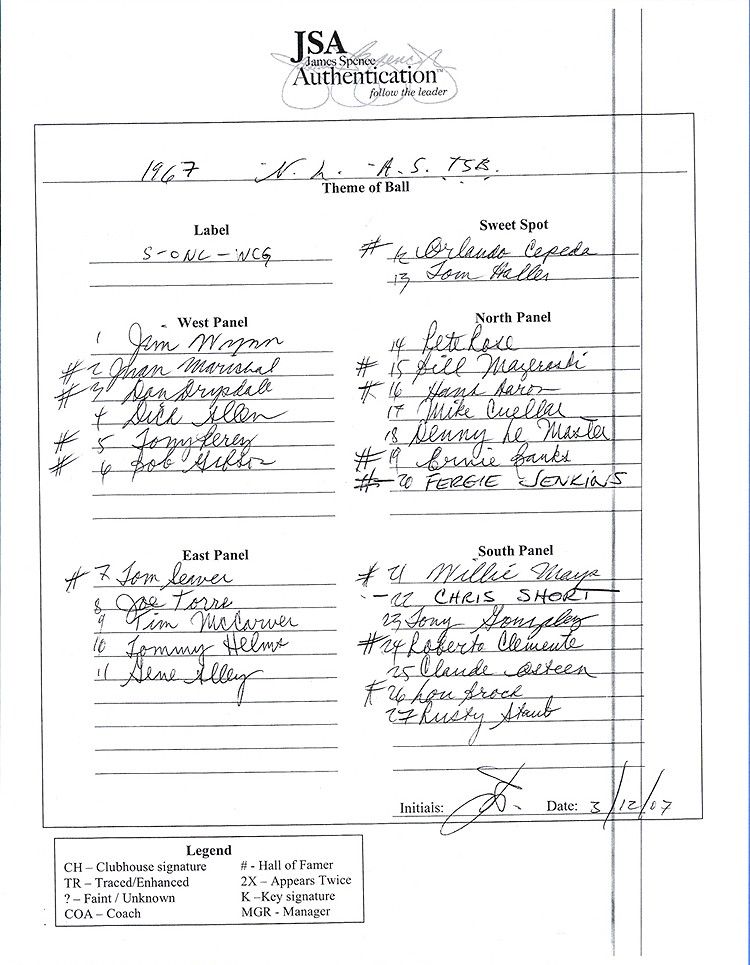 JSA
James Spence
Authentication™
follow the leader
1967 N. L. - A. S. TSB.
Theme of Ball
Label
S-ONL-WCG
Sweet Spot
# 12 Orlando Cepeda
13 Tom Haller
West Panel
1 Jim Wynn
# 2 Juan Marichal
# 3 Don Drysdale
4 Dick Allen
# 5 Tony Perez
# 6 Bob Gibson
North Panel
14 Pete Rose
# 15 Bill Mazeroski
# 16 Hank Aaron
17 Mike Cuellar
18 Denny Le Master
# 19 Ernie Banks
# 20 FERGIE JENKINS
East Panel
# 7 Tom Seaver
8 Joe Torre
9 Tim McCarver
10 Tommy Helms
11 Gene Alley
South Panel
# 21 Willie Mays
22 CHRIS SHORT
23 Tony Gonzalez
# 24 Roberto Clemente
25 Claude Osteen
# 26 Lou Brock
27 Rusty Staub
Initials: Date: 3/12/07
Legend
CH – Clubhouse signature
TR – Traced/Enhanced
? – Faint / Unknown
COA – Coach
# - Hall of Famer
2X – Appears Twice
K – Key signature
MGR - Manager